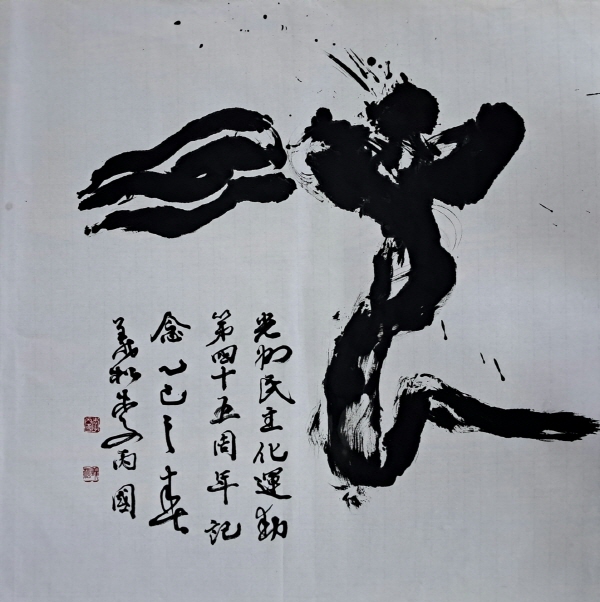 光州民主化運動
第四十五周年記
念乙巳之春
義松 丙國